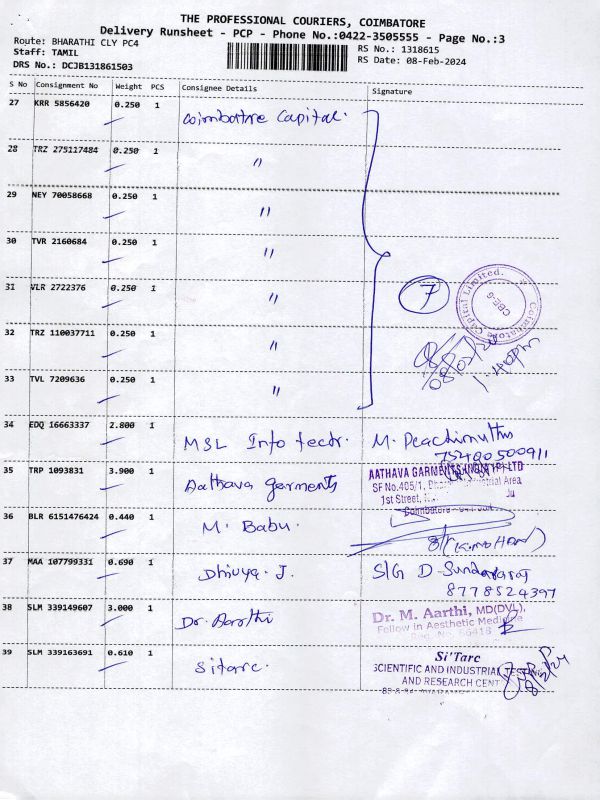 THE PROFESSIONAL COURIERS, COIMBATORE
Delivery Runsheet - PCP - Phone No.:0422-3505555 - Page No.:3
Route: BHARATHI CLY PC4
RS No.: 1318615
Staff: TAMIL
RS Date: 08-Feb-2024
DRS No.: DCJB131861503
S No Consignment No Weight PCS Consignee Details Signature
27 KRR 5856420 0.250 1 Coimbatore Capital.
28 TRZ 275117484 0.250 1 "
29 NEY 70058668 0.250 1 "
30 TVR 2160684 0.250 1 "
31 VLR 2722376 0.250 1 "
7
Coimbatore Capital Limited.
CBE-6
08/02/24
1.40pm
32 TRZ 110037711 0.250 1 "
33 TVL 7209636 0.250 1 "
34 EDQ 16663337 2.800 1 MSL Info tech. M. Peachimuthu
75490500911
35 TRP 1093831 3.900 1 Aathava garments AATHAVA GARMENTS INDIA PVT LTD
SF No.405/1, Industrial Area
1st Street,
Coimbatore
36 BLR 6151476424 0.440 1 M. Babu.
37 MAA 107799331 0.690 1 Dhivya. J. S/G D-Sundararaj
8778524397
38 SLM 339149607 3.000 1 Dr. Aarthi Dr. M. Aarthi, MD(DVL),
Fellow in Aesthetic Medicine
Reg. No. 86418
39 SLM 339163691 0.610 1 Sitarc. Si'Tarc
SCIENTIFIC AND INDUSTRIAL TESTING
AND RESEARCH CENT